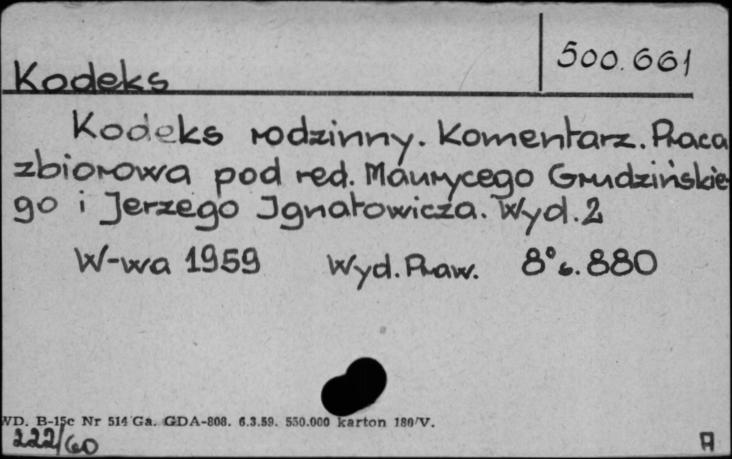 500.661
Kodeks
Kodeks rodzinny. Komentarz. Praca
zbiorowa pod red. Maurycego Grudzińskie-
go i Jerzego Ignatowicza. Wyd. 2
W-wa 1959 Wyd. Praw. 8° s. 880
WD. B-15c Nr 514 Ga. GDA-808. 6.3.59. 550.000 karton 180/V.
222/60
A